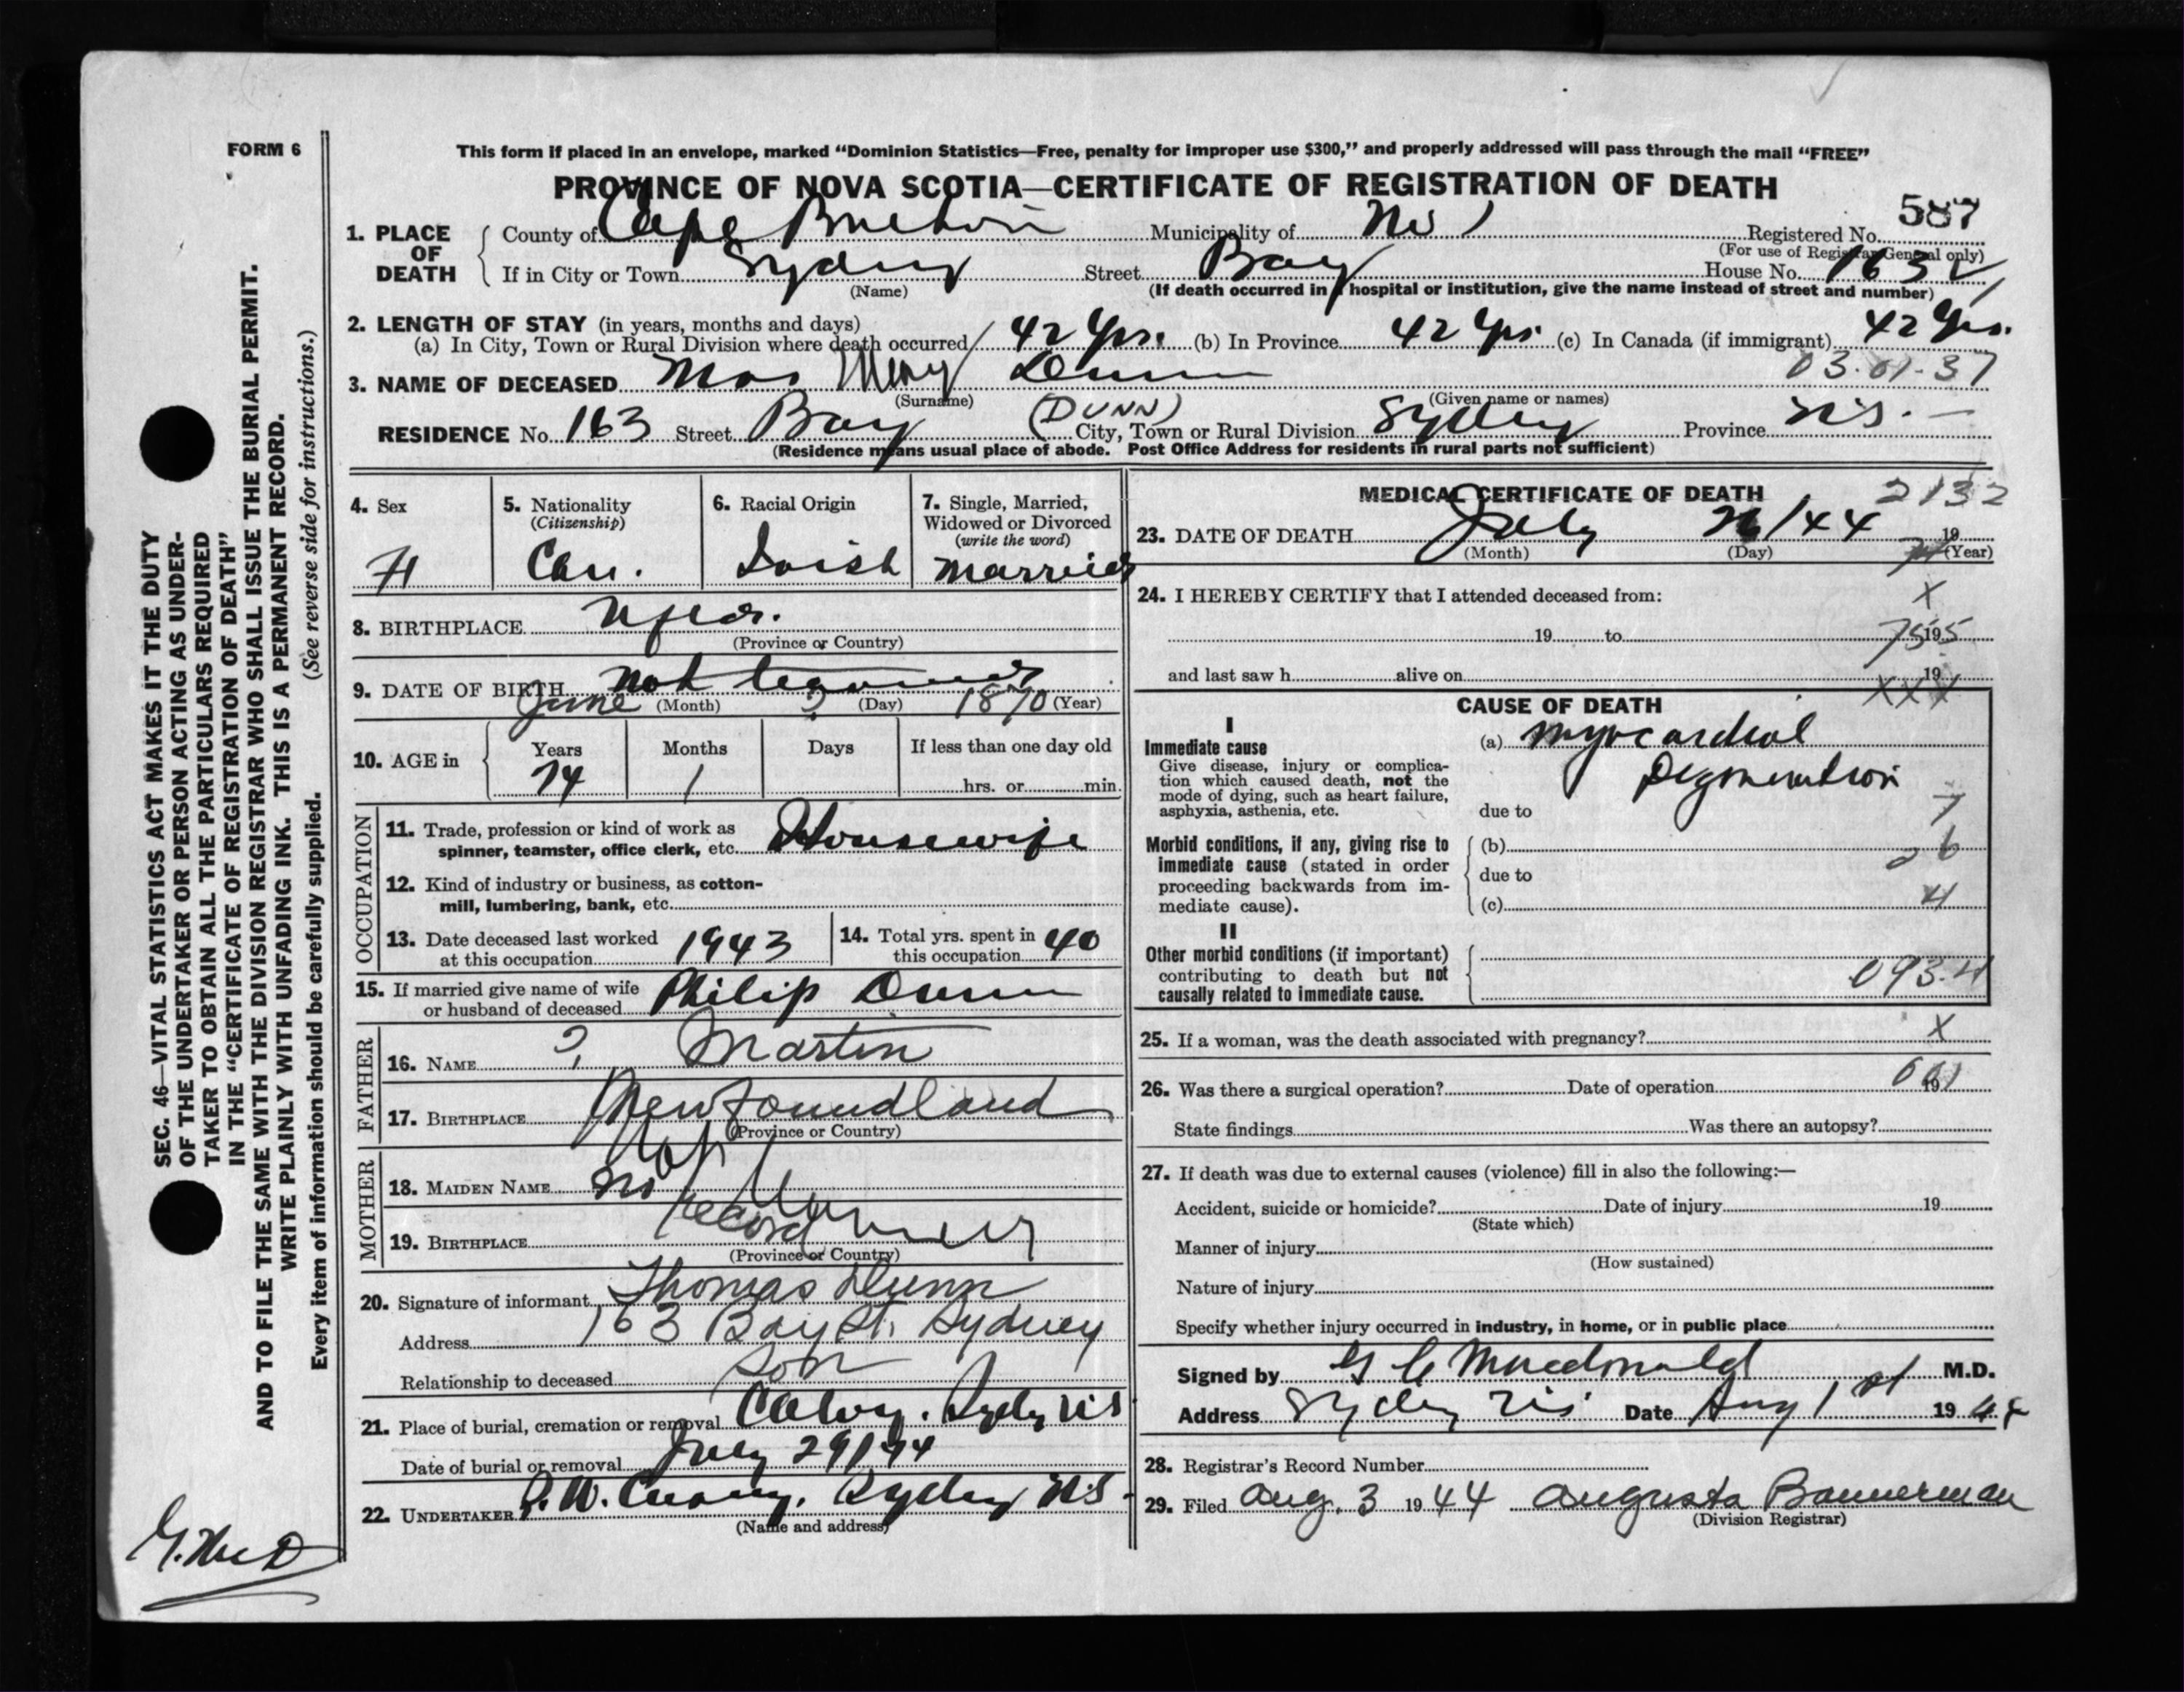 FORM 6
This form if placed in an envelope, marked “Dominion Statistics—Free, penalty for improper use $300,” and properly addressed will pass through the mail “FREE”
PROVINCE OF NOVA SCOTIA—CERTIFICATE OF REGISTRATION OF DEATH
587
1. PLACE OF DEATH County of Cape Breton Municipality of No 1 Registered No.
(For use of Registrar General only)
If in City or Town Sydney Street Bay House No. 163
(Name) (If death occurred in a hospital or institution, give the name instead of street and number)
2. LENGTH OF STAY (in years, months and days)
(a) In City, Town or Rural Division where death occurred 42 Yrs. (b) In Province 42 Yrs. (c) In Canada (if immigrant) 42 Yrs.
03-01-37
3. NAME OF DECEASED Mrs Mary Dunn
(Surname) (Given name or names)
(DUNN)
RESIDENCE No. 163 Street Bay City, Town or Rural Division Sydney Province N.S. —
(Residence means usual place of abode. Post Office Address for residents in rural parts not sufficient)
4. Sex
F
5. Nationality
(Citizenship)
Can.
6. Racial Origin
Irish
7. Single, Married,
Widowed or Divorced
(write the word)
Married
8. BIRTHPLACE Nfld.
(Province or Country)
9. DATE OF BIRTH not known
June (Month) ? (Day) 1870 (Year)
10. AGE in Years Months Days If less than one day old
74 1 hrs. or min.
OCCUPATION
11. Trade, profession or kind of work as
spinner, teamster, office clerk, etc. Housewife
12. Kind of industry or business, as cotton-
mill, lumbering, bank, etc.
13. Date deceased last worked
at this occupation 1943
14. Total yrs. spent in
this occupation 40
15. If married give name of wife
or husband of deceased Philip Dunn
FATHER
16. NAME ? Martin
17. BIRTHPLACE Newfoundland
(Province or Country)
MOTHER
18. MAIDEN NAME Not
No
19. BIRTHPLACE record
(Province or Country)
20. Signature of informant Thomas Dunn
Address 163 Bay St. Sydney
Relationship to deceased Son
21. Place of burial, cremation or removal Calvary. Sydney N.S.
Date of burial or removal July 29/44
22. UNDERTAKER Sydney N.S.
(Name and address)
MEDICAL CERTIFICATE OF DEATH
2132
23. DATE OF DEATH July 26/44 19
(Month) (Day) (Year)
24. I HEREBY CERTIFY that I attended deceased from:
X
19 to 19
755
and last saw h alive on 19
XXX
CAUSE OF DEATH
I
Immediate cause
Give disease, injury or complica-
tion which caused death, not the
mode of dying, such as heart failure,
asphyxia, asthenia, etc.
(a) Myocardial
Degeneration
due to
7
Morbid conditions, if any, giving rise to
immediate cause (stated in order
proceeding backwards from im-
mediate cause).
(b) 26
due to
(c) 4
II
Other morbid conditions (if important)
contributing to death but not
causally related to immediate cause.
093.4
25. If a woman, was the death associated with pregnancy? X
26. Was there a surgical operation? Date of operation 19
State findings Was there an autopsy?
27. If death was due to external causes (violence) fill in also the following:—
Accident, suicide or homicide? Date of injury 19
(State which)
Manner of injury
(How sustained)
Nature of injury
Specify whether injury occurred in industry, in home, or in public place
Signed by Macdonald M.D.
Address Sydney N.S. Date Aug 1st 1944
28. Registrar's Record Number
29. Filed Aug. 3 1944 Augusta Bannerman
(Division Registrar)
SEC. 46—VITAL STATISTICS ACT MAKES IT THE DUTY
OF THE UNDERTAKER OR PERSON ACTING AS UNDER-
TAKER TO OBTAIN ALL THE PARTICULARS REQUIRED
IN THE “CERTIFICATE OF REGISTRATION OF DEATH”
AND TO FILE THE SAME WITH THE DIVISION REGISTRAR WHO SHALL ISSUE THE BURIAL PERMIT.
WRITE PLAINLY WITH UNFADING INK. THIS IS A PERMANENT RECORD.
Every item of information should be carefully supplied. (See reverse side for instructions.)